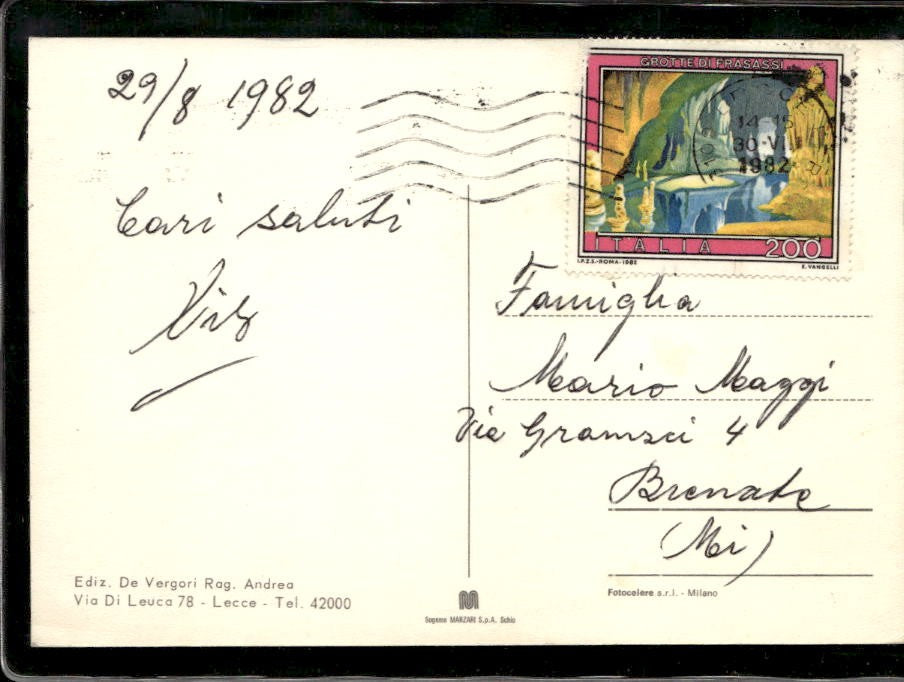 29/8 1982
Cari saluti
GROTTE DI FRASASSI
14-15
30 VIII
1982
ITALIA 200
I.P.Z.S.-ROMA-1982 E. VANGELLI
Famiglia
Mario Maggi
Via Gramsci 4
Brenate
(Mi)
Ediz. De Vergori Rag. Andrea
Via Di Leuca 78 - Lecce - Tel. 42000
Sagomo MANZARI S.p.A. Schio
Fotocelere s.r.l. - Milano